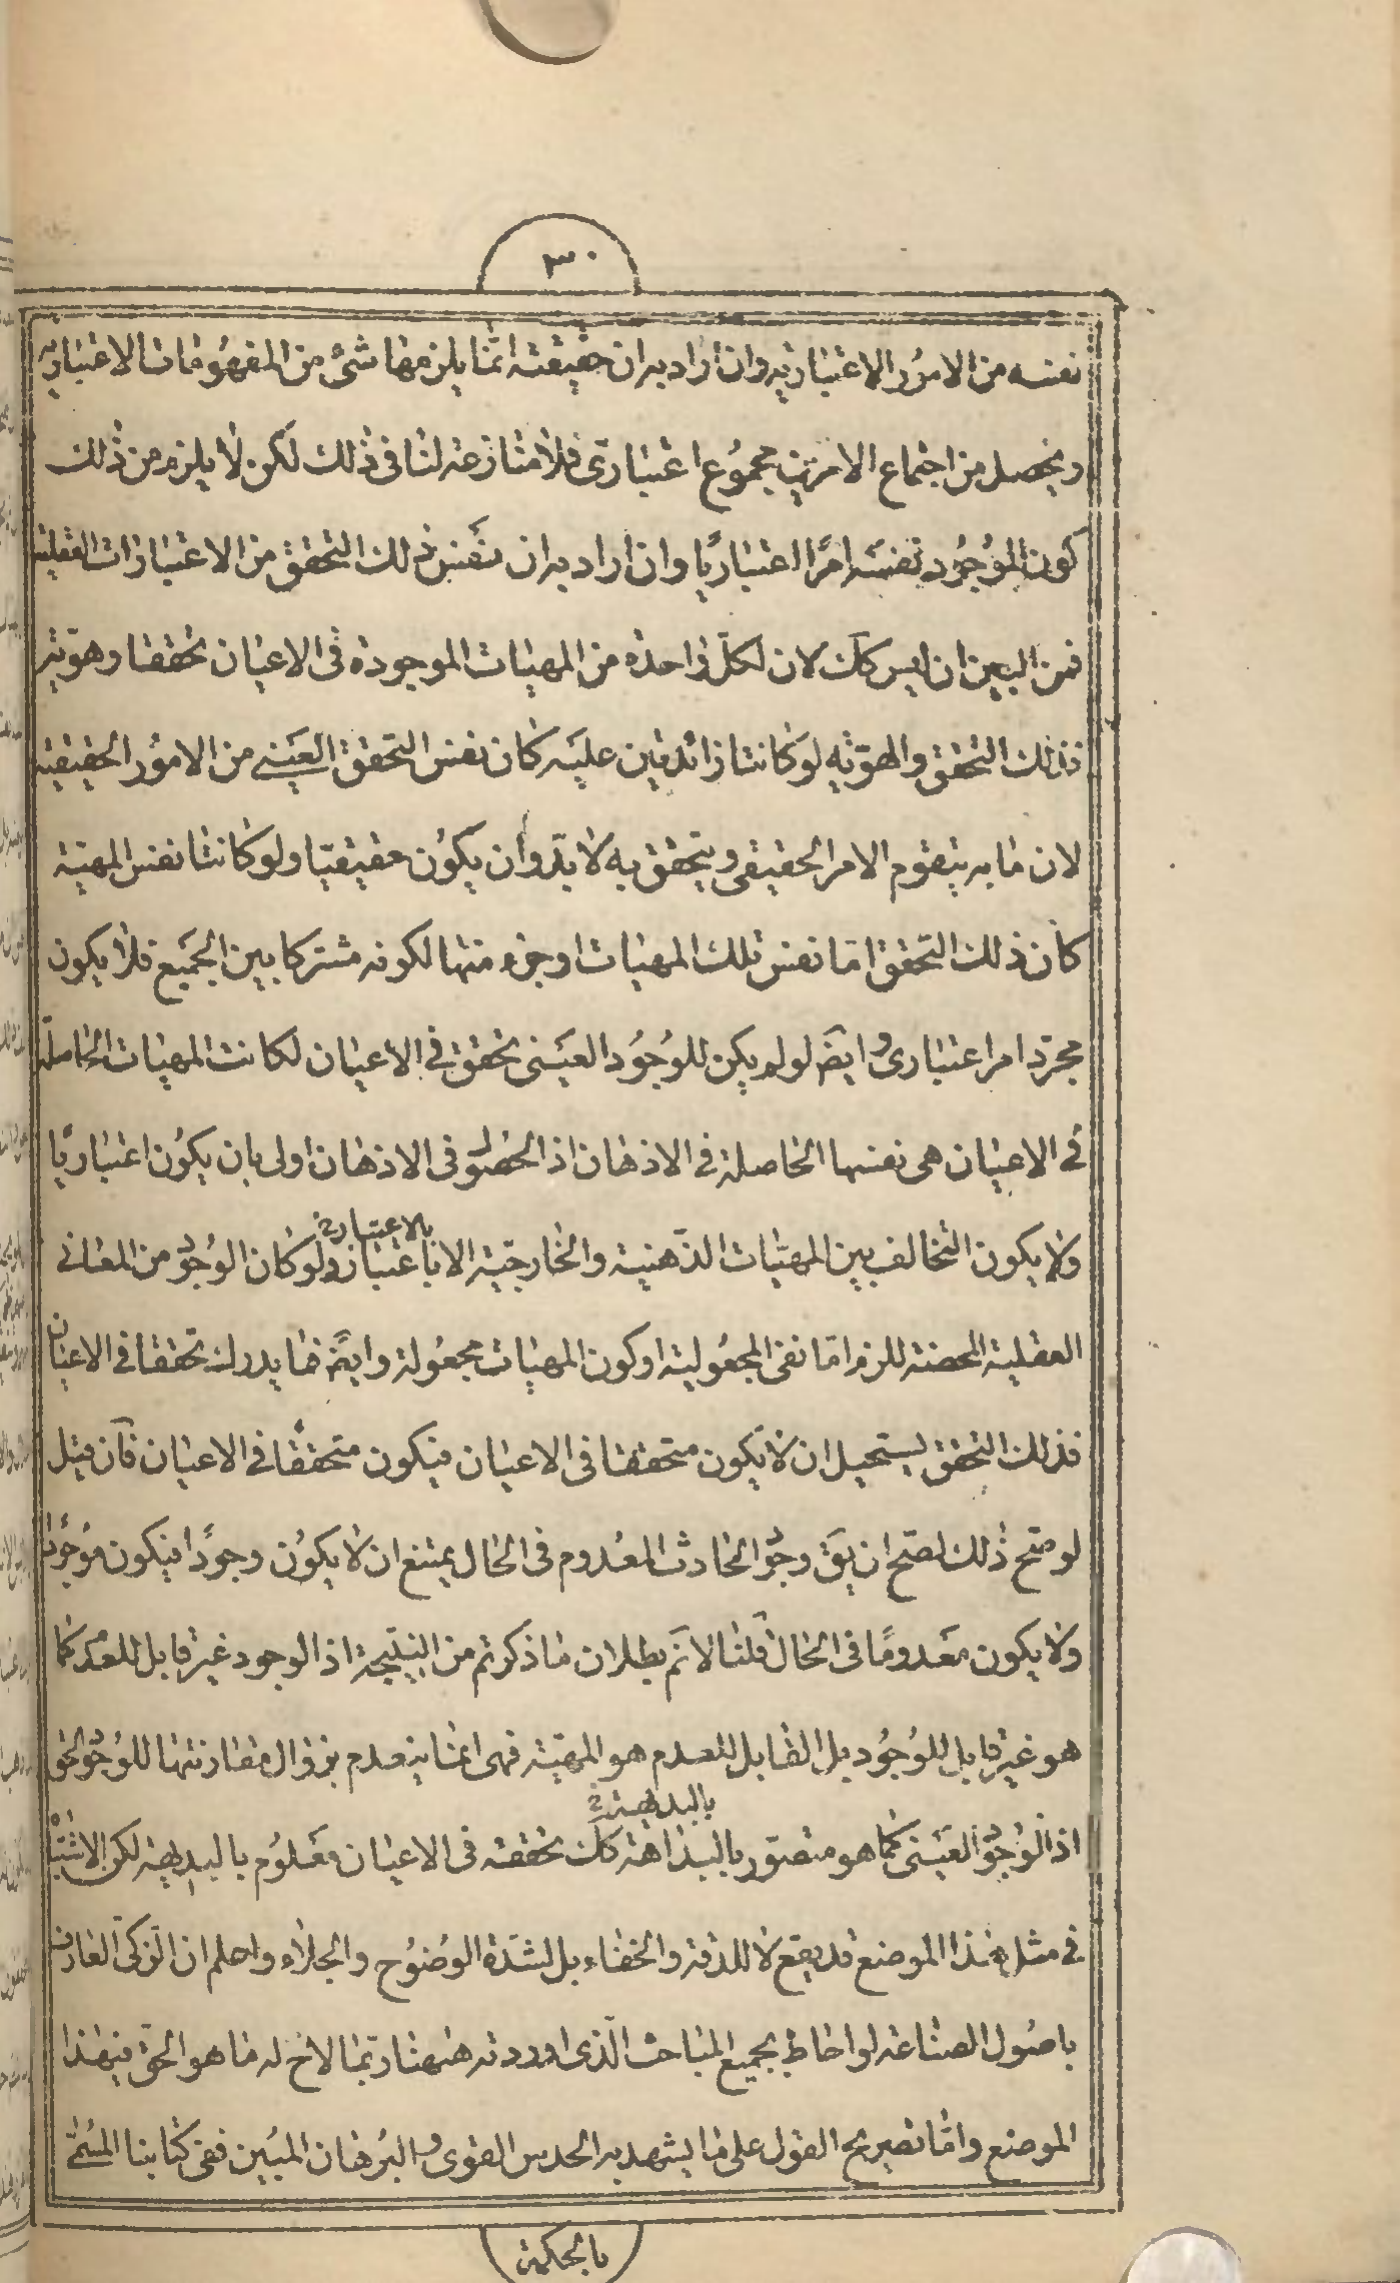 ٣٠
نفسه من الامور الاعتباريه وان اراد به ان حقيقته انما يلزمها شئ من المفهومات الاعتباريه
ويحصل من اجتماع الامرين مجموع اعتبارى فلا منازعة لنا فى ذلك لكن لا يلزم من ذلك
كون الموجود نفسه امرًا اعتباريًا وان اراد به ان نفس ذلك التحقق من الاعتبارات العقلية
فمن البين ان ليس كك لان لكل واحدة من المهيات الموجودة فى الاعيان تحققا وهوية
فذلك التحقق والهوّيه لو كانتا زائدتين عليه كان نفس التحقق العينى من الامور الحقيقية
لان ما به يتقوم الامر الحقيقى ويتحقق به لا بدّ وان يكون حقيقيّا ولو كانتا نفس المهيّة
كان ذلك التحقق امّا نفس تلك المهيات او جزء منها لكونه مشتركا بين الجميع فلا يكون
مجرّد امر اعتبارى وايضَ لو لم يكن للوجُود العينى تحقق فى الاعيان لكانت المهيات الحاصلة
فى الاعيان هى نفسها الحاصلة فى الاذهان اذ الحصول فى الاذهان اولى بان يكون اعتباريًا
بالاعتبار
ولا يكون التخالف بين المهيّات الذّهنية والخارجيّة الا باعتبار ولو كان الوجود من المعانى
العقلية المحضة للزم امّا نفى المجعولية او كون المهيات مجعولة وايضً فما يدرك تحققا فى الاعيان
فذلك التحقق يستحيل ان لا يكون متحققا فى الاعيان فيكون متحققًا فى الاعيان فآن قيل
لو صحّ ذلك لصحّ ان يقَ وجود الحادث المعدوم فى الحال يمتنع ان لا يكون وجودًا فيكون موجودًا
ولا يكون معدومًا فى الحال قلنا لا نَم بطلان ما ذكرتم من النتيجة اذ الوجود غير قابل للعدم كما
هو غير قابل للوجُود بل القابل للعدم هو المهيّة فهى انما ينعدم بزوال مقارنتها للوجود الخ
بالبديهة
اذ الوجود العينى كما هو متصوّر بالبداهة كك تحققه فى الاعيان معلوم بالبديهة لكن الاشتباه
فى مثل هذا الموضع قد يقع لا للدقة والخفاء بل لشدّة الوضوح والجلاء واعلم ان الزكىّ العارف
باصُول الصناعة لو احاط بجميع المباحث الّذى اوردته هٰهنا ربّما لاح له ما هو الحقّ فى هٰذا
الموضع وامّا تصريح القول على ما يشهد به الحدس القوى والبرهان المبين ففى كتابنا المسمّى
بالحكمة